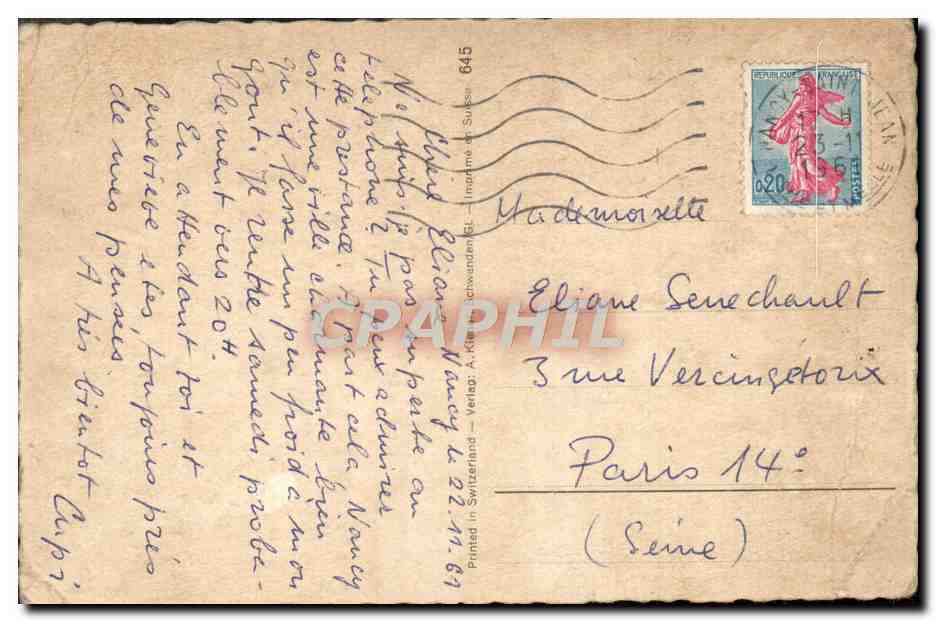 Nancy le 22.11.61
Chère Eliane
Ne suis-je pas superbe au
téléphone? Tu peux admirer
cette prestance. A part cela Nancy
est une ville charmante bien
qu'il fasse un peu froid à mon
gout. Je rentre samedi proba-
blement vers 20H.
En attendant toi et
Geneviève etes toujours près
de mes pensées
A très bientot Cupi
Printed in Switzerland — Verlag: A. Schwanden/Gl. — Imprimé en Suisse 645
REPUBLIQUE FRANÇAISE
0,20
POSTES
NANCY SAINT JEAN
23-11
Mademoiselle
Eliane Senechault
3 rue Vercingétorix
Paris 14e
(Seine)
CPAPHIL